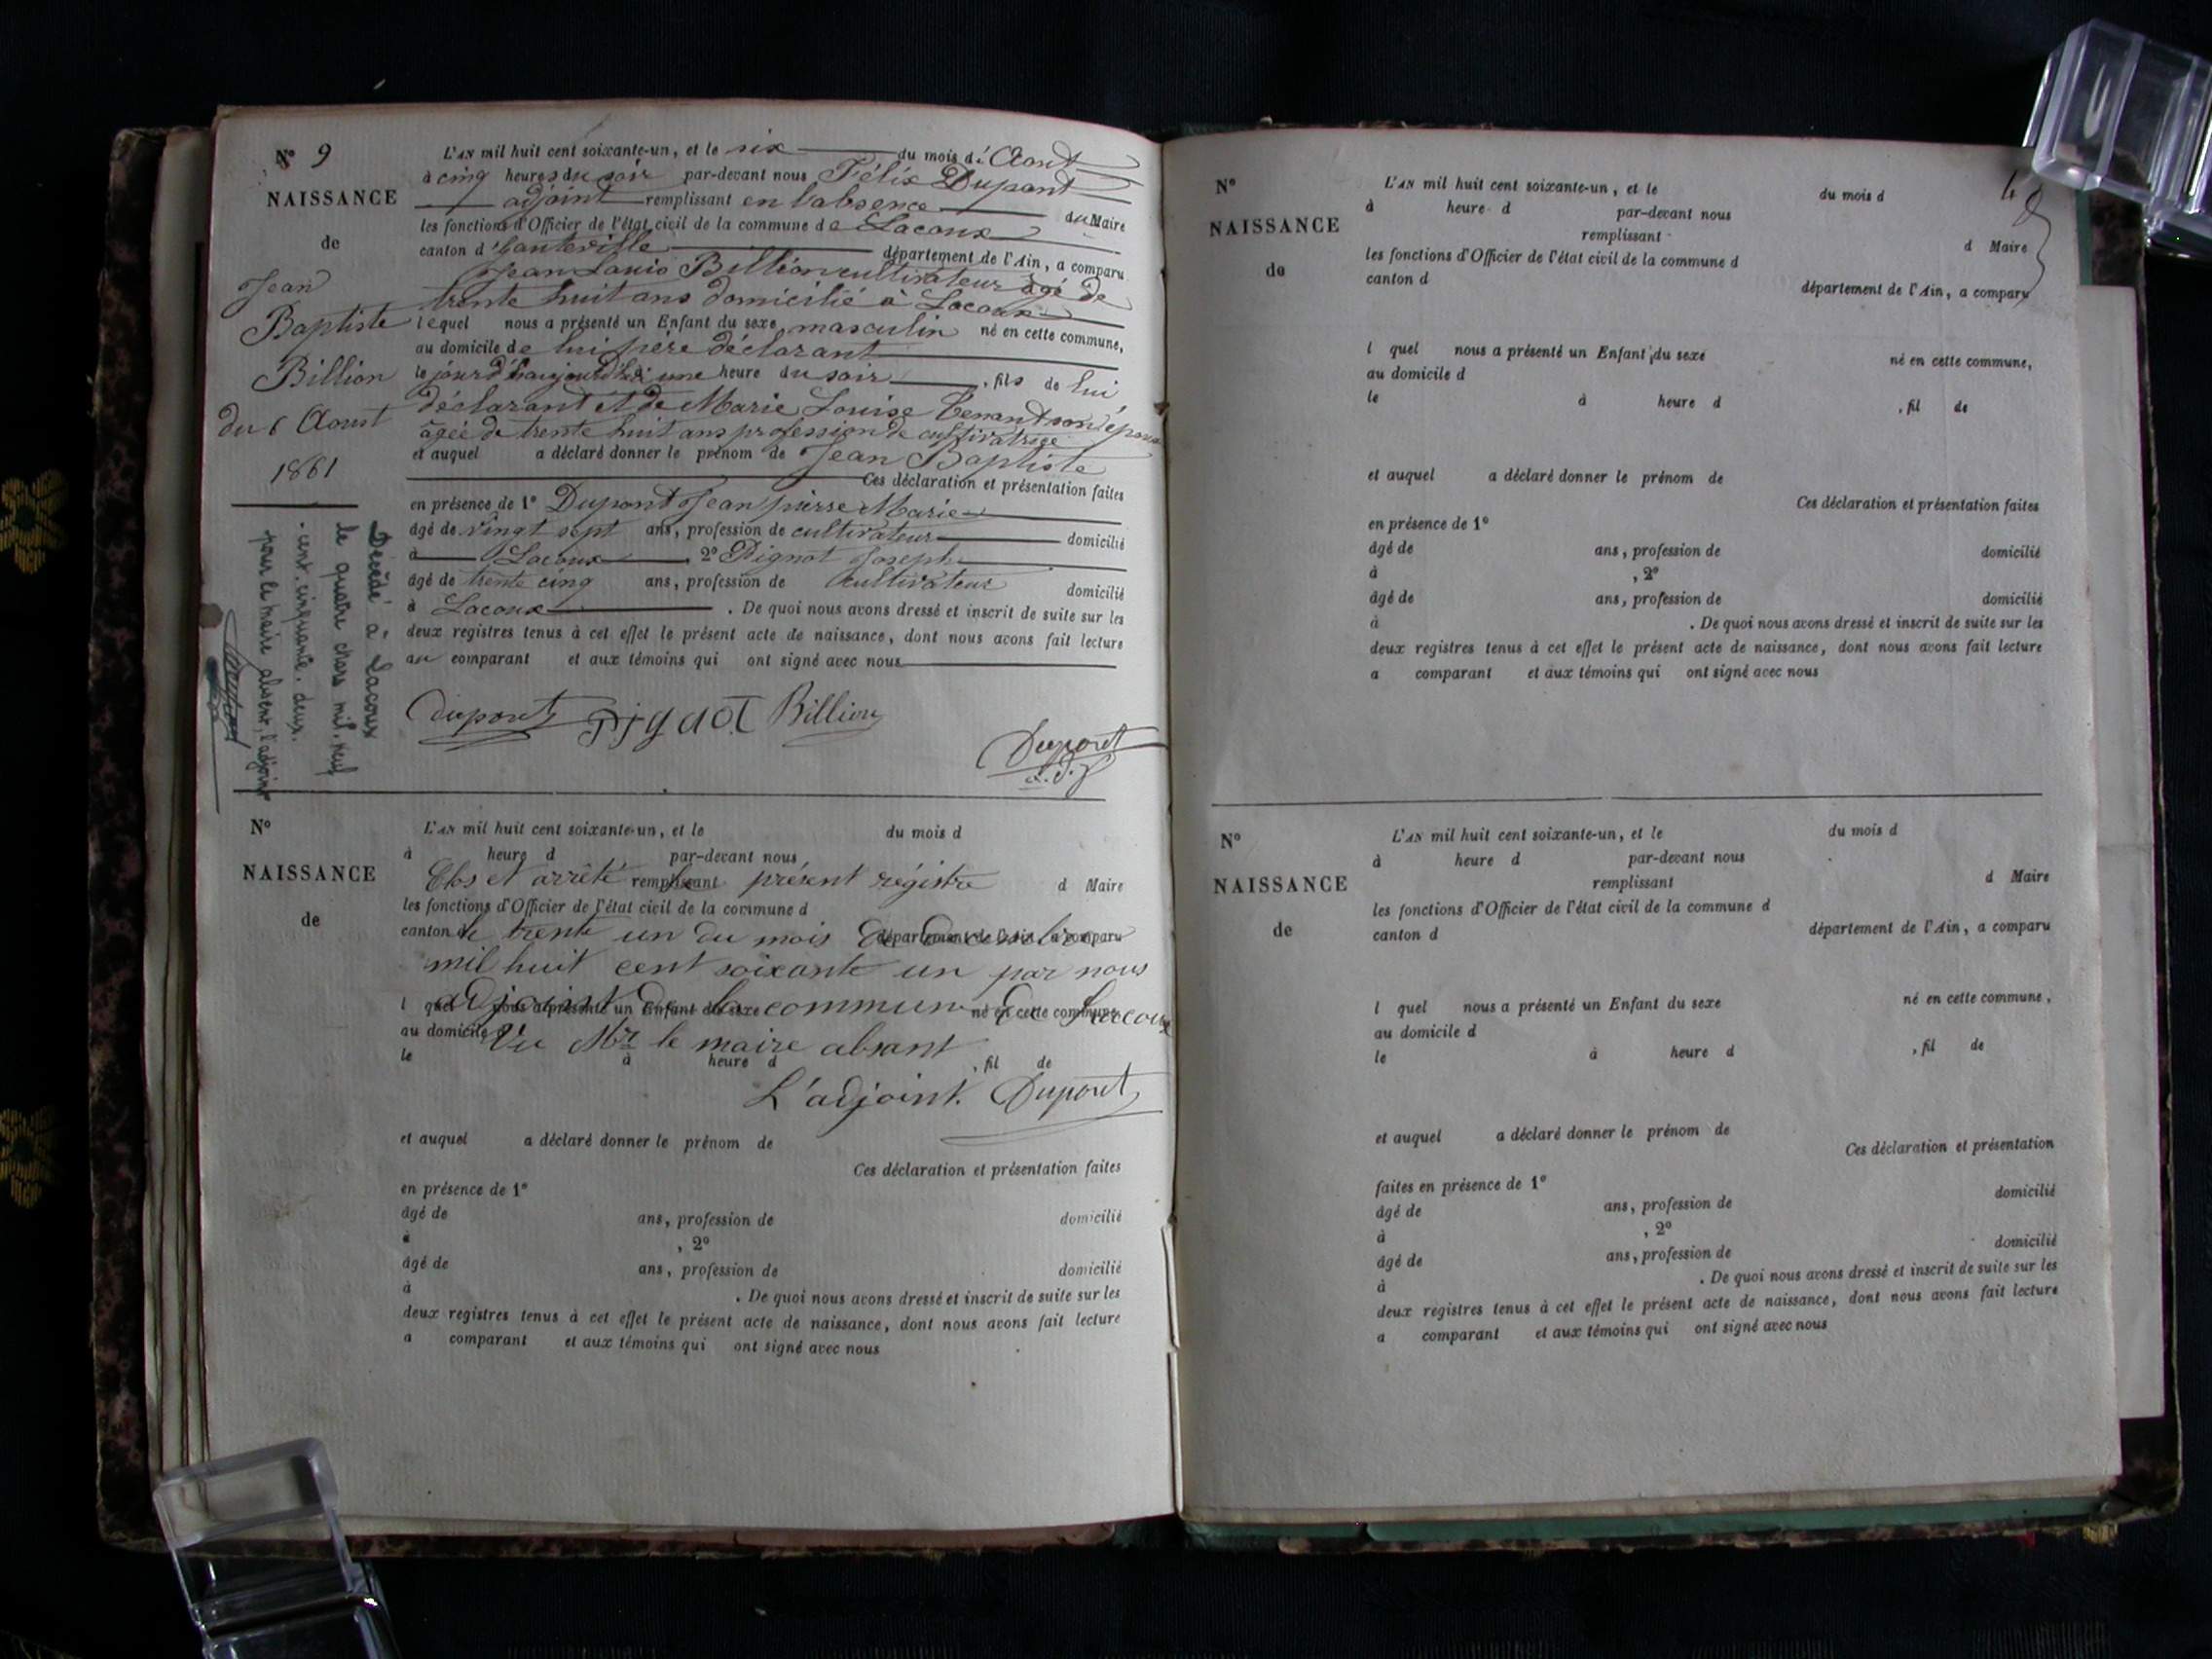 N° 9
NAISSANCE
de
Jean
Baptiste
Billion
du 6 Aoust
1861
Décédé à Lacoux
le quatre mars mil neuf
cent cinquante deux.
pour le maire absent, l'adjoint
L'AN mil huit cent soixante-un, et le six du mois d' Aout
à cinq heures du soir par-devant nous Félix Dupont
adjoint remplissant en l'absence du Maire
les fonctions d'Officier de l'état civil de la commune de Lacoux
canton d'hauteville département de l'Ain, a comparu
Jean Louis Billion cultivateur âgé de
trente huit ans domicilié à Lacoux
lequel nous a présenté un Enfant du sexe masculin né en cette commune,
au domicile de lui père déclarant
le jour d'haujourd'hui une heure du soir, fils de lui
déclarant et de Marie Louise Tenand son épouse
âgée de trente huit ans profession de cultivatrice
et auquel a déclaré donner le prénom de Jean Baptiste
Ces déclaration et présentation faites
en présence de 1° Dupont Jean pierre Marie
âgé de vingt sept ans, profession de cultivateur domicilié
à Lacoux, 2° Pignot Joseph
âgé de trente cinq ans, profession de cultivateur domicilié
à Lacoux. De quoi nous avons dressé et inscrit de suite sur les
deux registres tenus à cet effet le présent acte de naissance, dont nous avons fait lecture
au comparant et aux témoins qui ont signé avec nous
dupont pignot Billion
Dupont
a.d.j
N°
NAISSANCE
de
L'AN mil huit cent soixante-un, et le du mois d
à heure d par-devant nous
Clos et arrêté le présent régistre
remplissant d Maire
les fonctions d'Officier de l'état civil de la commune d
canton d département de l'Ain, a comparu
le trente un du mois de Décembre
mil huit cent soixante un par nous
adjoint de la commune de Lacoux
l quel nous a présenté un Enfant du sexe né en cette commune,
au domicile d
Vu Mr le maire absant
le à heure d , fil de
L'adjoint. Dupont
et auquel a déclaré donner le prénom de
Ces déclaration et présentation faites
en présence de 1°
âgé de ans, profession de domicilié
à , 2°
âgé de ans, profession de domicilié
à . De quoi nous avons dressé et inscrit de suite sur les
deux registres tenus à cet effet le présent acte de naissance, dont nous avons fait lecture
a comparant et aux témoins qui ont signé avec nous
N°
NAISSANCE
de
L'AN mil huit cent soixante-un, et le du mois d
à heure d par-devant nous
remplissant d Maire
les fonctions d'Officier de l'état civil de la commune d
canton d département de l'Ain, a comparu
l quel nous a présenté un Enfant du sexe né en cette commune,
au domicile d
le à heure d , fil de
et auquel a déclaré donner le prénom de
Ces déclaration et présentation faites
en présence de 1°
âgé de ans, profession de domicilié
à , 2°
âgé de ans, profession de domicilié
à . De quoi nous avons dressé et inscrit de suite sur les
deux registres tenus à cet effet le présent acte de naissance, dont nous avons fait lecture
a comparant et aux témoins qui ont signé avec nous
N°
NAISSANCE
de
L'AN mil huit cent soixante-un, et le du mois d
à heure d par-devant nous
remplissant d Maire
les fonctions d'Officier de l'état civil de la commune d
canton d département de l'Ain, a comparu
l quel nous a présenté un Enfant du sexe né en cette commune,
au domicile d
le à heure d , fil de
et auquel a déclaré donner le prénom de
Ces déclaration et présentation
faites en présence de 1°
âgé de ans, profession de domicilié
à , 2°
âgé de ans, profession de domicilié
à . De quoi nous avons dressé et inscrit de suite sur les
deux registres tenus à cet effet le présent acte de naissance, dont nous avons fait lecture
a comparant et aux témoins qui ont signé avec nous